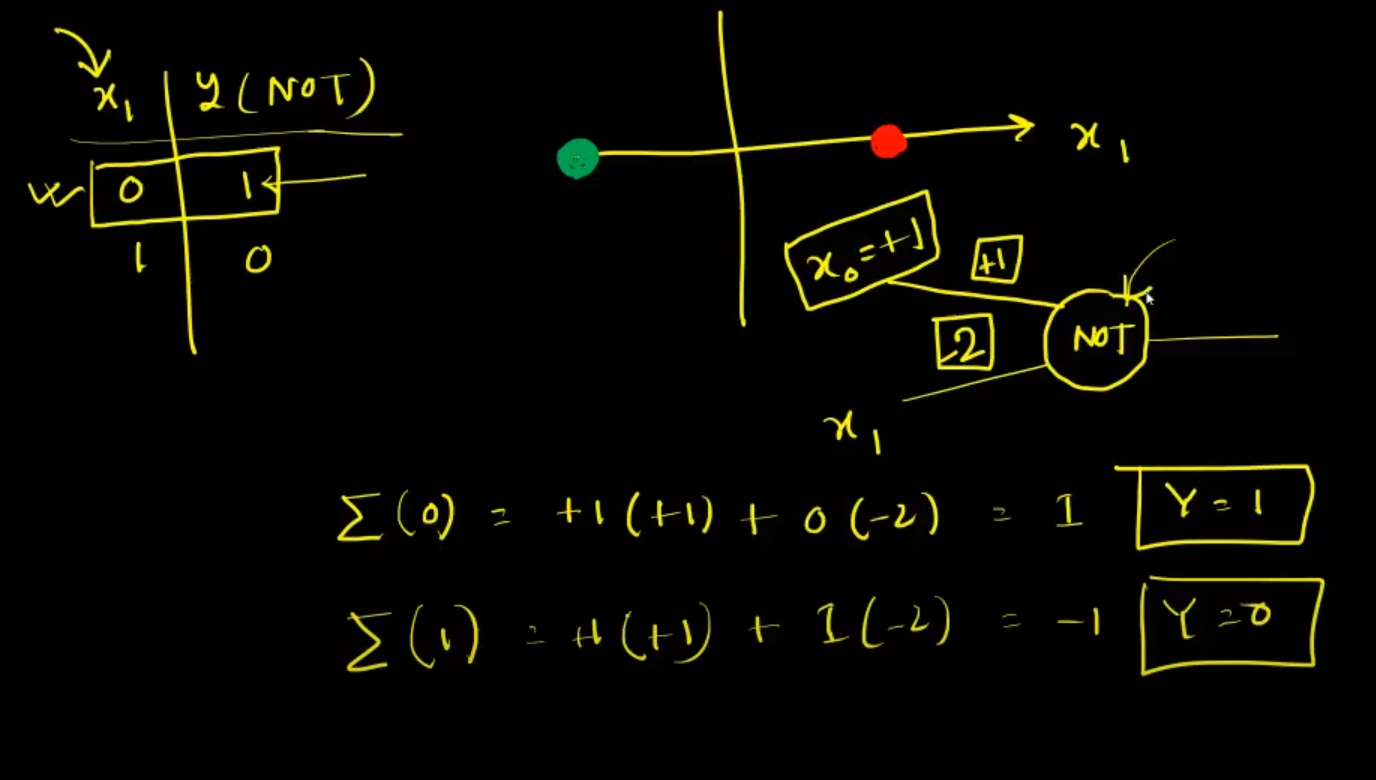 x₁ | Y (NOT)
0 | 1
1 | 0
x₁
x₀ = +1
+1
-2
NOT
x₁
Σ(0) = +1(+1) + 0(-2) = 1 Y = 1
Σ(1) = +1(+1) + 1(-2) = -1 Y = 0